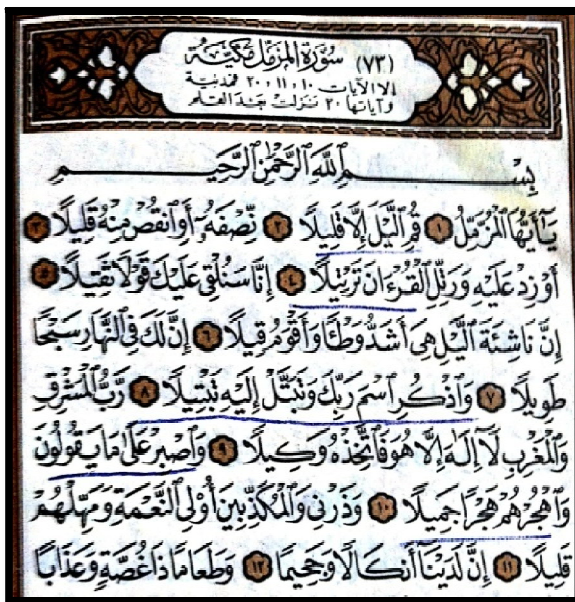 (٧٣) سورة المزمل مكية
إلا الآيات ١٠ و ١١ و ٢٠ فمدنية
وآياتها ٢٠ نزلت بعد القلم
بِسْمِ اللَّهِ الرَّحْمَٰنِ الرَّحِيمِ
يَٰٓأَيُّهَا ٱلْمُزَّمِّلُ ١ قُمِ ٱلَّيْلَ إِلَّا قَلِيلًا ٢ نِّصْفَهُۥٓ أَوِ ٱنقُصْ مِنْهُ قَلِيلًا ٣
أَوْ زِدْ عَلَيْهِ وَرَتِّلِ ٱلْقُرْءَانَ تَرْتِيلًا ٤ إِنَّا سَنُلْقِى عَلَيْكَ قَوْلًا ثَقِيلًا ٥
إِنَّ نَاشِئَةَ ٱلَّيْلِ هِىَ أَشَدُّ وَطْـًٔا وَأَقْوَمُ قِيلًا ٦ إِنَّ لَكَ فِى ٱلنَّهَارِ سَبْحًا
طَوِيلًا ٧ وَٱذْكُرِ ٱسْمَ رَبِّكَ وَتَبَتَّلْ إِلَيْهِ تَبْتِيلًا ٨ رَّبُّ ٱلْمَشْرِقِ
وَٱلْمَغْرِبِ لَآ إِلَٰهَ إِلَّا هُوَ فَٱتَّخِذْهُ وَكِيلًا ٩ وَٱصْبِرْ عَلَىٰ مَا يَقُولُونَ
وَٱهْجُرْهُمْ هَجْرًا جَمِيلًا ١٠ وَذَرْنِى وَٱلْمُكَذِّبِينَ أُو۟لِى ٱلنَّعْمَةِ وَمَهِّلْهُمْ
قَلِيلًا ١١ إِنَّ لَدَيْنَآ أَنكَالًا وَجَحِيمًا ١٢ وَطَعَامًا ذَا غُصَّةٍ وَعَذَابًا